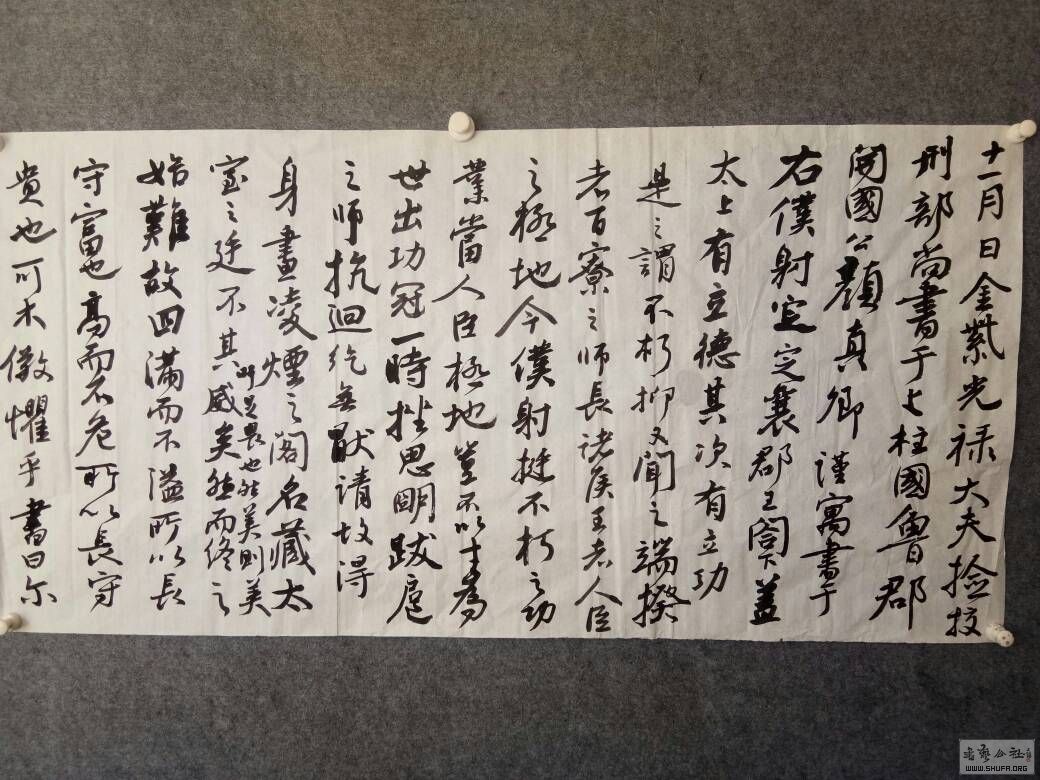 十一月日金紫光禄大夫捡挍
刑部尚書上柱國魯郡
開國公顏真卿謹寓書于
右僕射定襄郡王閣下蓋
太上有立德其次有立功
是之謂不朽抑又聞之端揆
者百寮之師長諸侯王者人臣
之極地今僕射挺不朽之功
業當人臣極地豈不以才為
世出功冠一時挫思明跋扈
之師抗迴紇無厭請故得
身畫凌煙之閣名藏太
室之廷
吁足畏也然美則美
矣然而終之
始難故曰滿而不溢所以長
守富也高而不危所以長守
貴也可不儆懼乎書曰尔
書藝公社
WWW.SHUFA.ORG